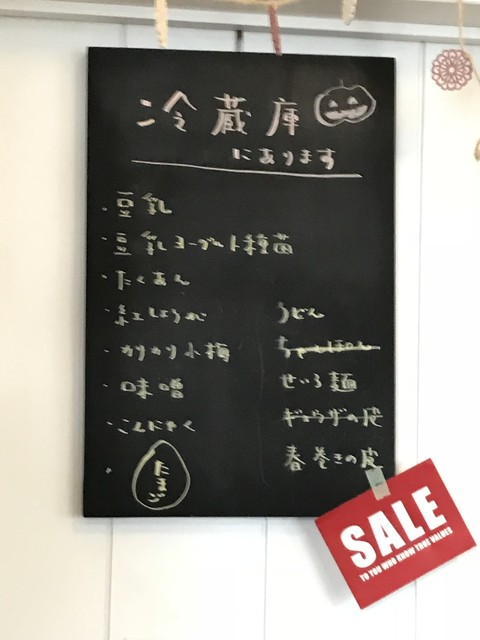 冷蔵庫
にあります
・豆乳
・豆乳ヨーグルト種菌
・たくあん
・紅しょうが
・カリカリ小梅
・味噌
・こんにゃく
・たまご
うどん
ちゃんぽん
せいろ麺
ギョウザの皮
春巻きの皮
SALE
TO YOU WHO KNOW TRUE VALUES